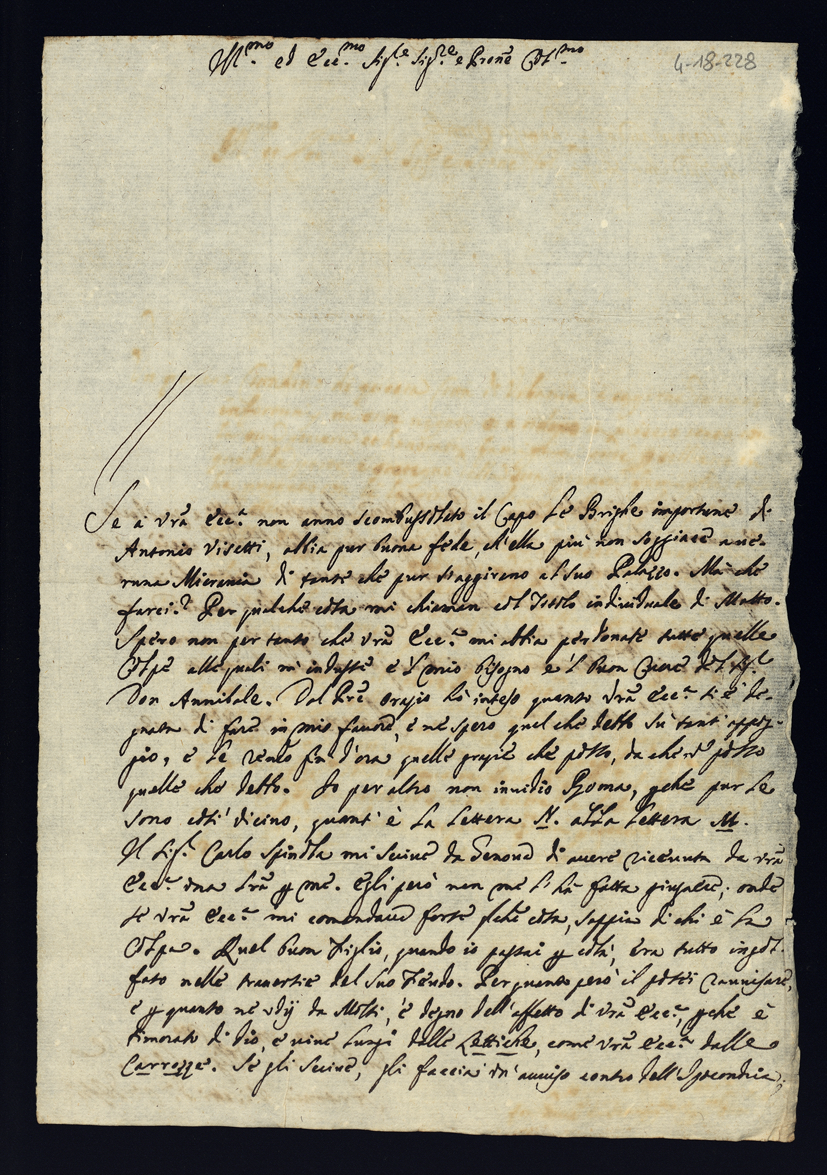 Ill.mo ed Ecc.mo Sig.re Sig.re e Prone Col.mo
4-18-228
Se à Vrã Ecc.a non anno scombussolato il Capo le Brighe importune di
Antonio Visetti, abbia pur buona fede, ch'ella più non soggiace a ve-
runa Micrania di tante che pur s'aggirano al suo Palazzo. Mà che
farci? Per qualche cosa mi chiaman col Titolo individuale di Matto.
Spero non per tanto che Vrã Ecc.a mi abbia perdonate tutte quelle
Colpe alle quali m'indusse e 'l mio bisogno e 'l buon Cuore del Sig.r
Don Annibale. Dal Prẽ Orazio hò inteso quanto Vrã Ecc.a si è de-
gnata di fare in mio favore, e ne spero quel che debbo sù tant'appog-
gio, e le rendo fin d'ora quelle grazie che posso, da che nõ posso
quelle che debbo. Io per altro non invidio Roma, pche pur le
sono così vicino, quant' è la lettera N. alla lettera M.
Il Sig.r Carlo Spinola mi scrive da Genova di avere ricevuta da Vrã
Ecc.a una Lrã p me. Egli però non me l'hà fatta giugnere; onde
se Vrã Ecc.a mi comandava forse qlche cosa, sappia di chi è la
Colpa. Quel buon Figlio, quando io passai p colà, era tutto ingol-
fato nelle traversie del suo Feudo. Per quanto però il potei ravvisare,
e p quanto ne udij da Molti, è degno dell'affetto di Vrã Ecc.a, pche è
timorato di Dio, e vive lungi dalle Lettiche, come Vrã Ecc.a dalle
Carrozze. Se gli scrive, gli faccia un' avviso contro dell'Ipocondria,